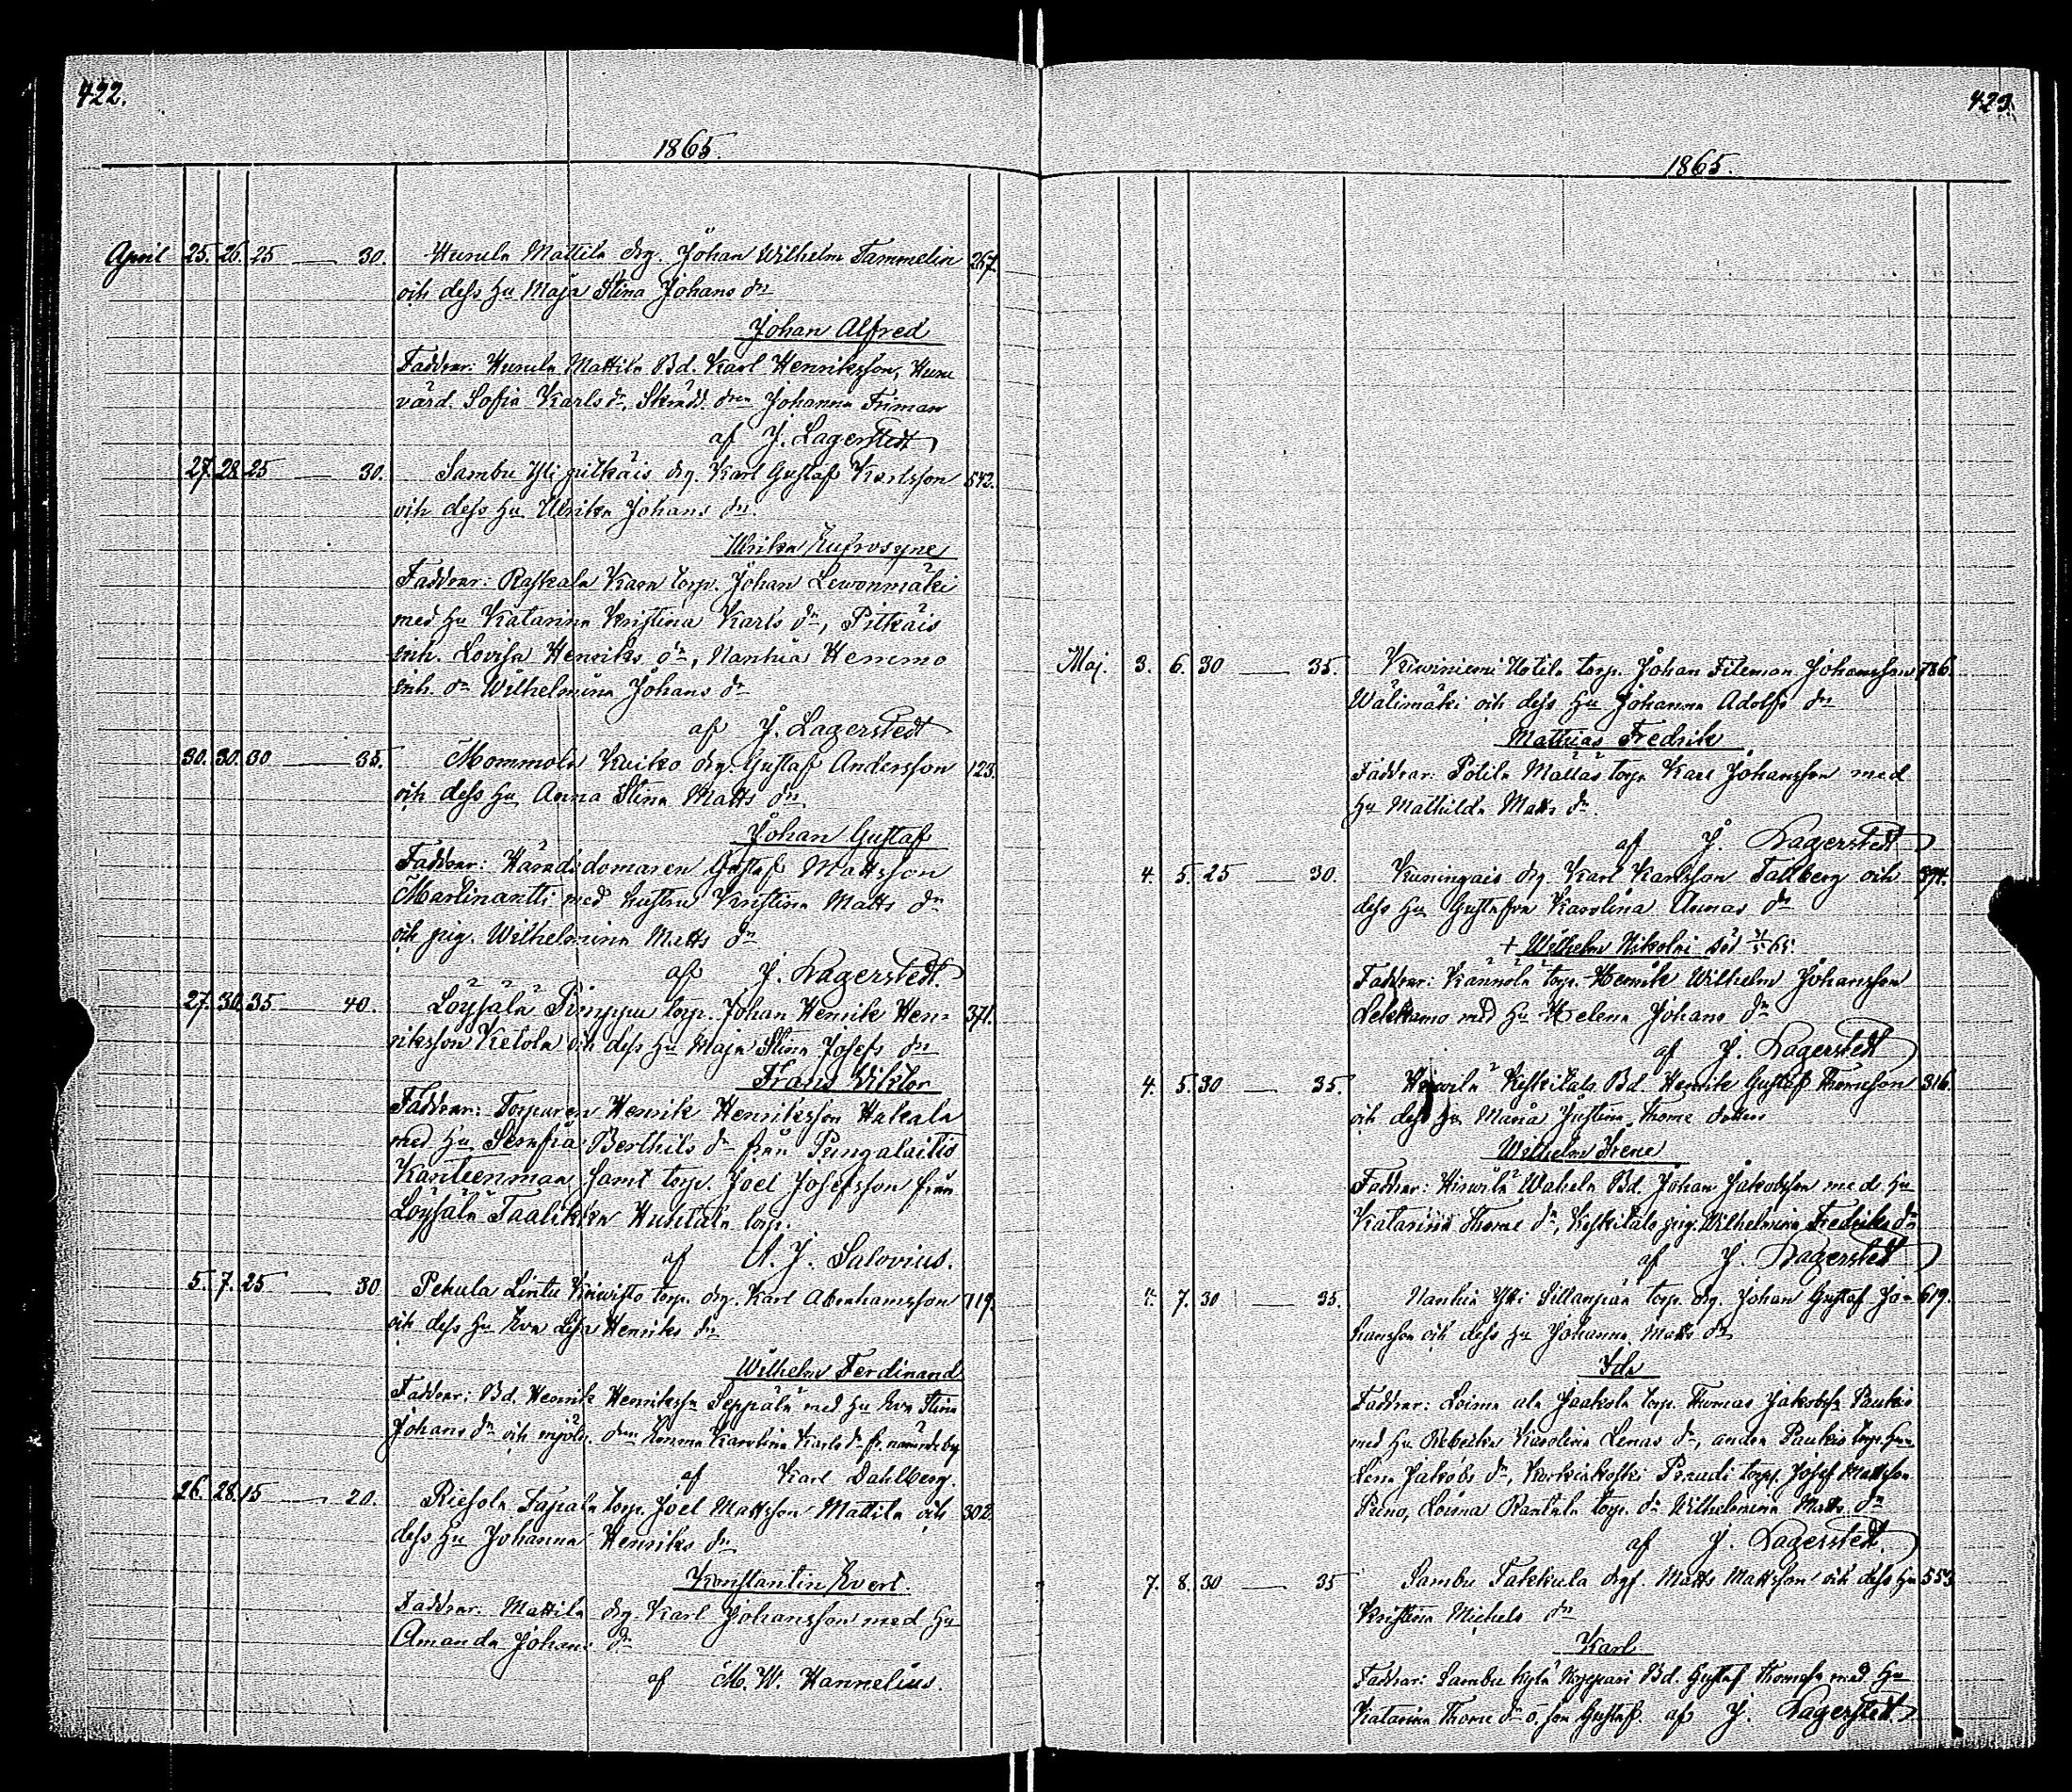 422.
1865.
April 25. 26. 25 — 30. Husula Mattila drg. Johan Wilhelm Tammelin 267.
och dess hu Maja Stina Johans dr
Johan Alfred
Faddrar: Husula Mattila Bd. Karl Henriksson, Husu
värd. Sofia Karls dr, Skrädd. dren Johanna Friman
af J. Lagerstedt
27. 28. 25 — 30. Sambu Yli pitkäis drg. Karl Gustaf Karlsson 542.
och dess hu Ulrika Johans dr.
Ulrika Eufrosyne
Faddrar: Raskala Kaon torp. Johan Lewonmäki
med hu Katarina Kristina Karls dr, Pitkäis
inh. Lovisa Henriks dr, Nanhia Hemmo
inh. dr Wilhelmina Johans dr
af J. Lagerstedt
30. 30. 30 — 35. Mommola Kuiko drg. Gustaf Andersson 123.
och dess hu Anna Stina Matts dr
Johan Gustaf
Faddrar: Häradsdomaren Gustaf Mattsson
Martinantti med hustru Kristina Matts dr
och pig. Wilhelmina Matts dr
af J. Lagerstedt.
27. 30. 35 — 40. Löysälä Pimppu torp. Johan Henrik Hen- 371.
riksson Ketola och dess hu Maja Stina Josefs dr
Frans Viktor
Faddrar: Torparen Henrik Henriksson Hakala
med hu Serafia Berthils dr från Pungalaitio
Kariteenmaa samt torp. Joel Josefsson från
Löysälä Taalikka Huhtala torp.
af A. J. Salovius.
5. 7. 25 — 30. Pehula Lintu Kiwisto torp. drg. Karl Abrahamsson 719.
och dess hu Eva Lisa Henriks dr
Wilhelm Ferdinand
Faddrar: Bd. Henrik Henriksson Seppälä med hu Eva Stina
Johans dr och mjöln. dren Emma Karolina Karls dr fr. nämnde by
af Karl Dahlberg.
26. 28. 15 — 20. Riesola Tapala torp. Joel Mattsson Mattila och 302.
dess hu Johanna Henriks dr
Konstantin Evert.
Faddrar: Mattila drg. Karl Johansson med hu
Amanda Johans dr
af M. W. Hannelius.
423.
1865.
Maj. 3. 6. 30 — 35. Kiwiniemi Uotila torp. Johan Fileman Johansson 786.
Wälimäki och dess hu Johanna Adolfs dr
Mathias Fredrik
Faddrar: Potila Mälläs torp. Karl Johansson med
hu Mathilda Matts dr.
af J. Lagerstedt
4. 5. 25 — 30. Kuningais drg. Karl Karlsson Tallberg och 394.
dess hu Gustafva Karolina Annas dr
+ Wilhelm Nikolai död 65.
Faddrar: Kannola torp. Henrik Wilhelm Johansson
med hu Helena Johans dr
af J. Lagerstedt
4. 5. 30 — 35. Keskitalo Bd. Henrik Gustaf Thomsson 316.
och dess hu Maria Justina Thome dotter
Wilhelm Irene
Faddrar: Hirwilä Wahela Bd. Johan Jakobsson med hu
Katarina Thome dr, Keskitalo pig. Wilhelmina Fredriks dr
af J. Lagerstedt
4. 7. 30 — 35. Nanhia Yli Sillanpää torp. drg. Johan Gustaf Jo- 619.
hansson och dess hu Johanna Matts dr
Ida
Faddrar: Loima ala Jaakola torp. Thomas Jakobsson Paukio
med hu Rebecka Karolina Lenas dr, andra Paukio torp. hu
Lena Jakobs dr, Kurkiakoski Prandi torp. Josef Mattsson
Loima Rantala torp. dr Wilhelmina Matts dr
af J. Lagerstedt.
7. 8. 30 — 35 Sambu Takkula drg. Matts Mattsson och dess hu 553.
Kristina Michels dr
Karl
Faddrar: Sambu Bd. Gustaf Thomsson med hu
Katarina Thome dr o. son Gustaf. af J. Lagerstedt